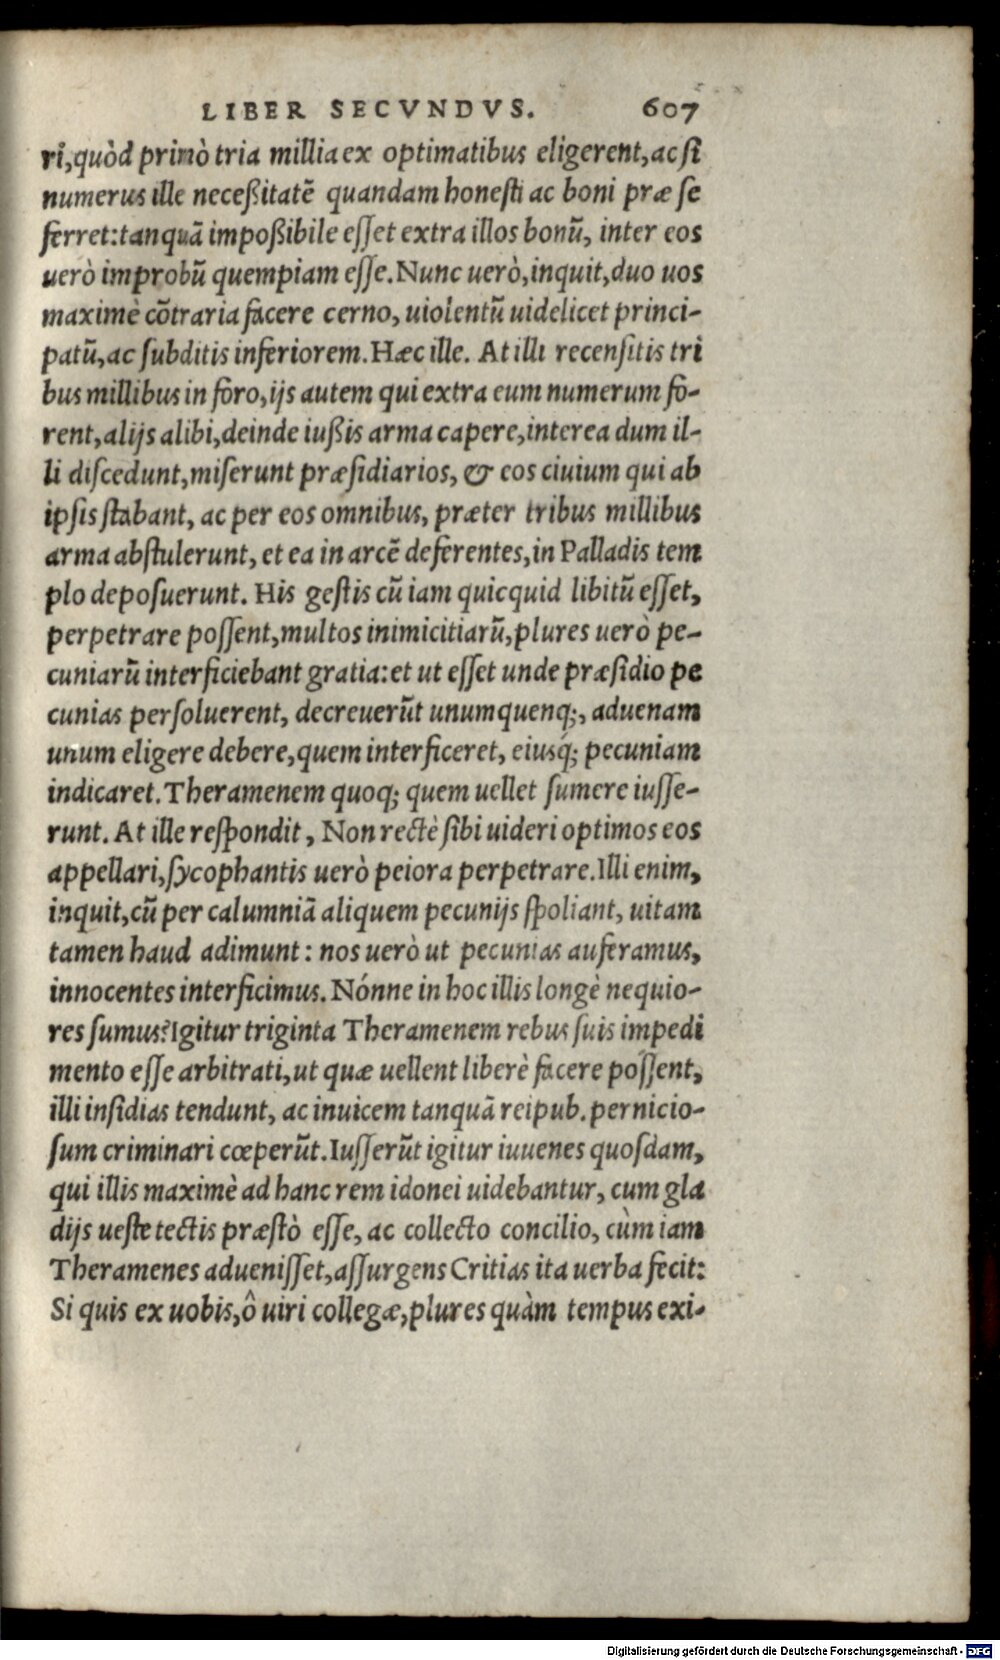 LIBER SECVNDVS. 607
ri, quòd primò tria millia ex optimatibus eligerent, ac si
numerus ille neceßitatē quandam honesti ac boni præ se
ferret: tanquā impoßibile esset extra illos bonū, inter eos
uerò improbū quempiam esse. Nunc uerò, inquit, duo uos
maximè cōtraria facere cerno, uiolentū uidelicet princi-
patū, ac subditis inferiorem. Hæc ille. At illi recensitis tri
bus millibus in foro, ijs autem qui extra eum numerum fo-
rent, alijs alibi, deinde iußis arma capere, interea dum il-
li discedunt, miserunt præsidiarios, & eos ciuium qui ab
ipsis stabant, ac per eos omnibus, præter tribus millibus
arma abstulerunt, et ea in arcē deferentes, in Palladis tem
plo deposuerunt. His gestis cū iam quicquid libitū esset,
perpetrare possent, multos inimicitiarū, plures uerò pe-
cuniarū interficiebant gratia: et ut esset unde præsidio pe
cunias persoluerent, decreuerūt unumquenq;, aduenam
unum eligere debere, quem interficeret, eiusq́; pecuniam
indicaret. Theramenem quoq; quem uellet sumere iusse-
runt. At ille respondit, Non rectè sibi uideri optimos eos
appellari, sycophantis uerò peiora perpetrare. Illi enim,
inquit, cū per calumniā aliquem pecunijs spoliant, uitam
tamen haud adimunt: nos uerò ut pecunias auferamus,
innocentes interficimus. Nónne in hoc illis longè nequio-
res sumus? Igitur triginta Theramenem rebus suis impedi
mento esse arbitrati, ut quæ uellent liberè facere possent,
illi insidias tendunt, ac inuicem tanquā reipub. pernicio-
sum criminari cœperūt. Iusserūt igitur iuuenes quosdam,
qui illis maximè ad hanc rem idonei uidebantur, cum gla
dijs ueste tectis præstò esse, ac collecto concilio, cùm iam
Theramenes aduenisset, assurgens Critias ita uerba fecit:
Si quis ex uobis, ô uiri collegæ, plures quàm tempus exi-
Digitalisierung gefördert durch die Deutsche Forschungsgemeinschaft - DFG